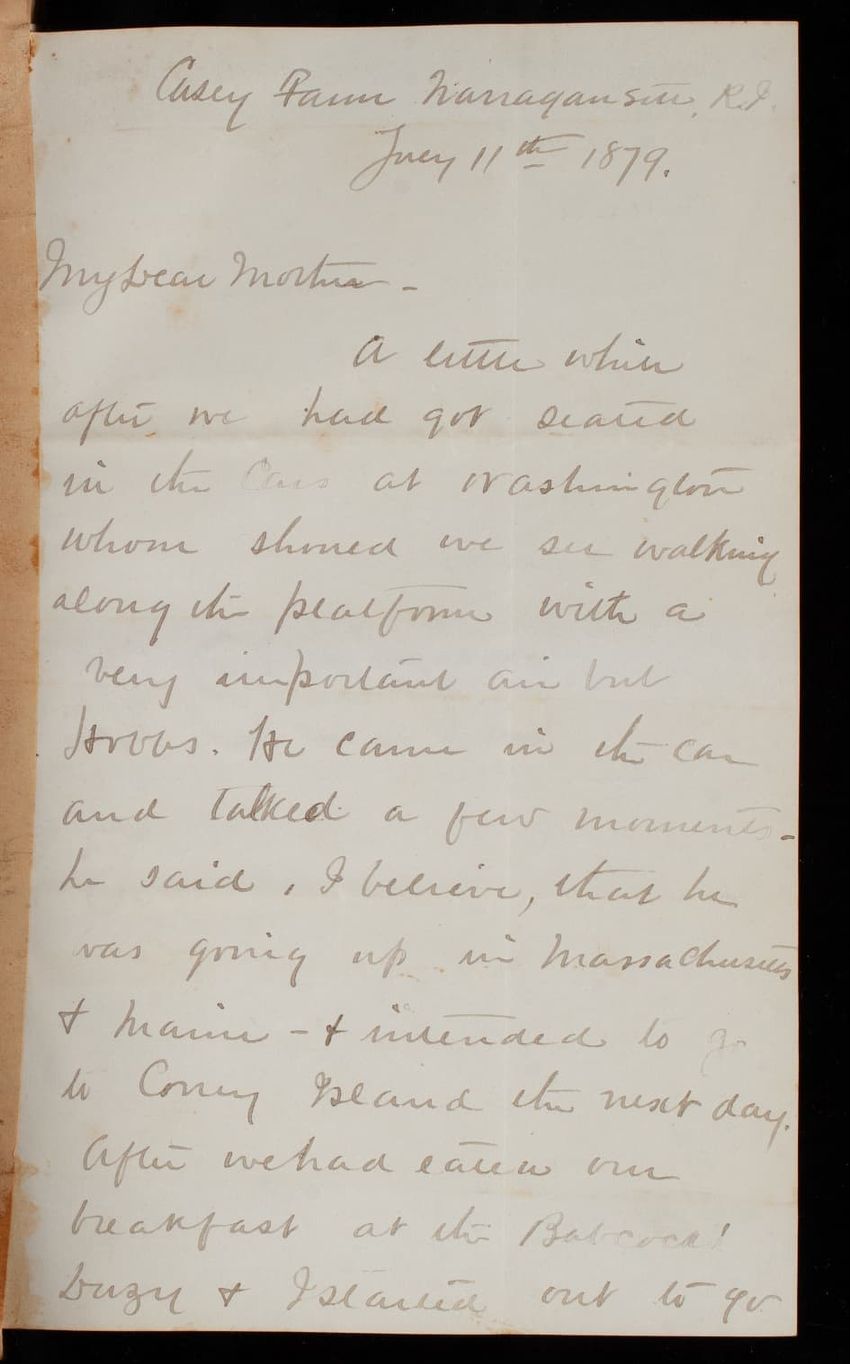 Casey Farm Narragansett, R.I.
July 11th 1879.
My Dear Mother -
A little while
after we had got seated
in the Cars at Washington
whom should we see walking
along the platform with a
very important air but
Hobbs. He came in the car
and talked a few moments -
he said, I believe, that he
was going up in Massachusetts
& Maine - & intended to go
to Coney Island the next day.
After we had eaten our
breakfast at the Babcock!
& I started out to go